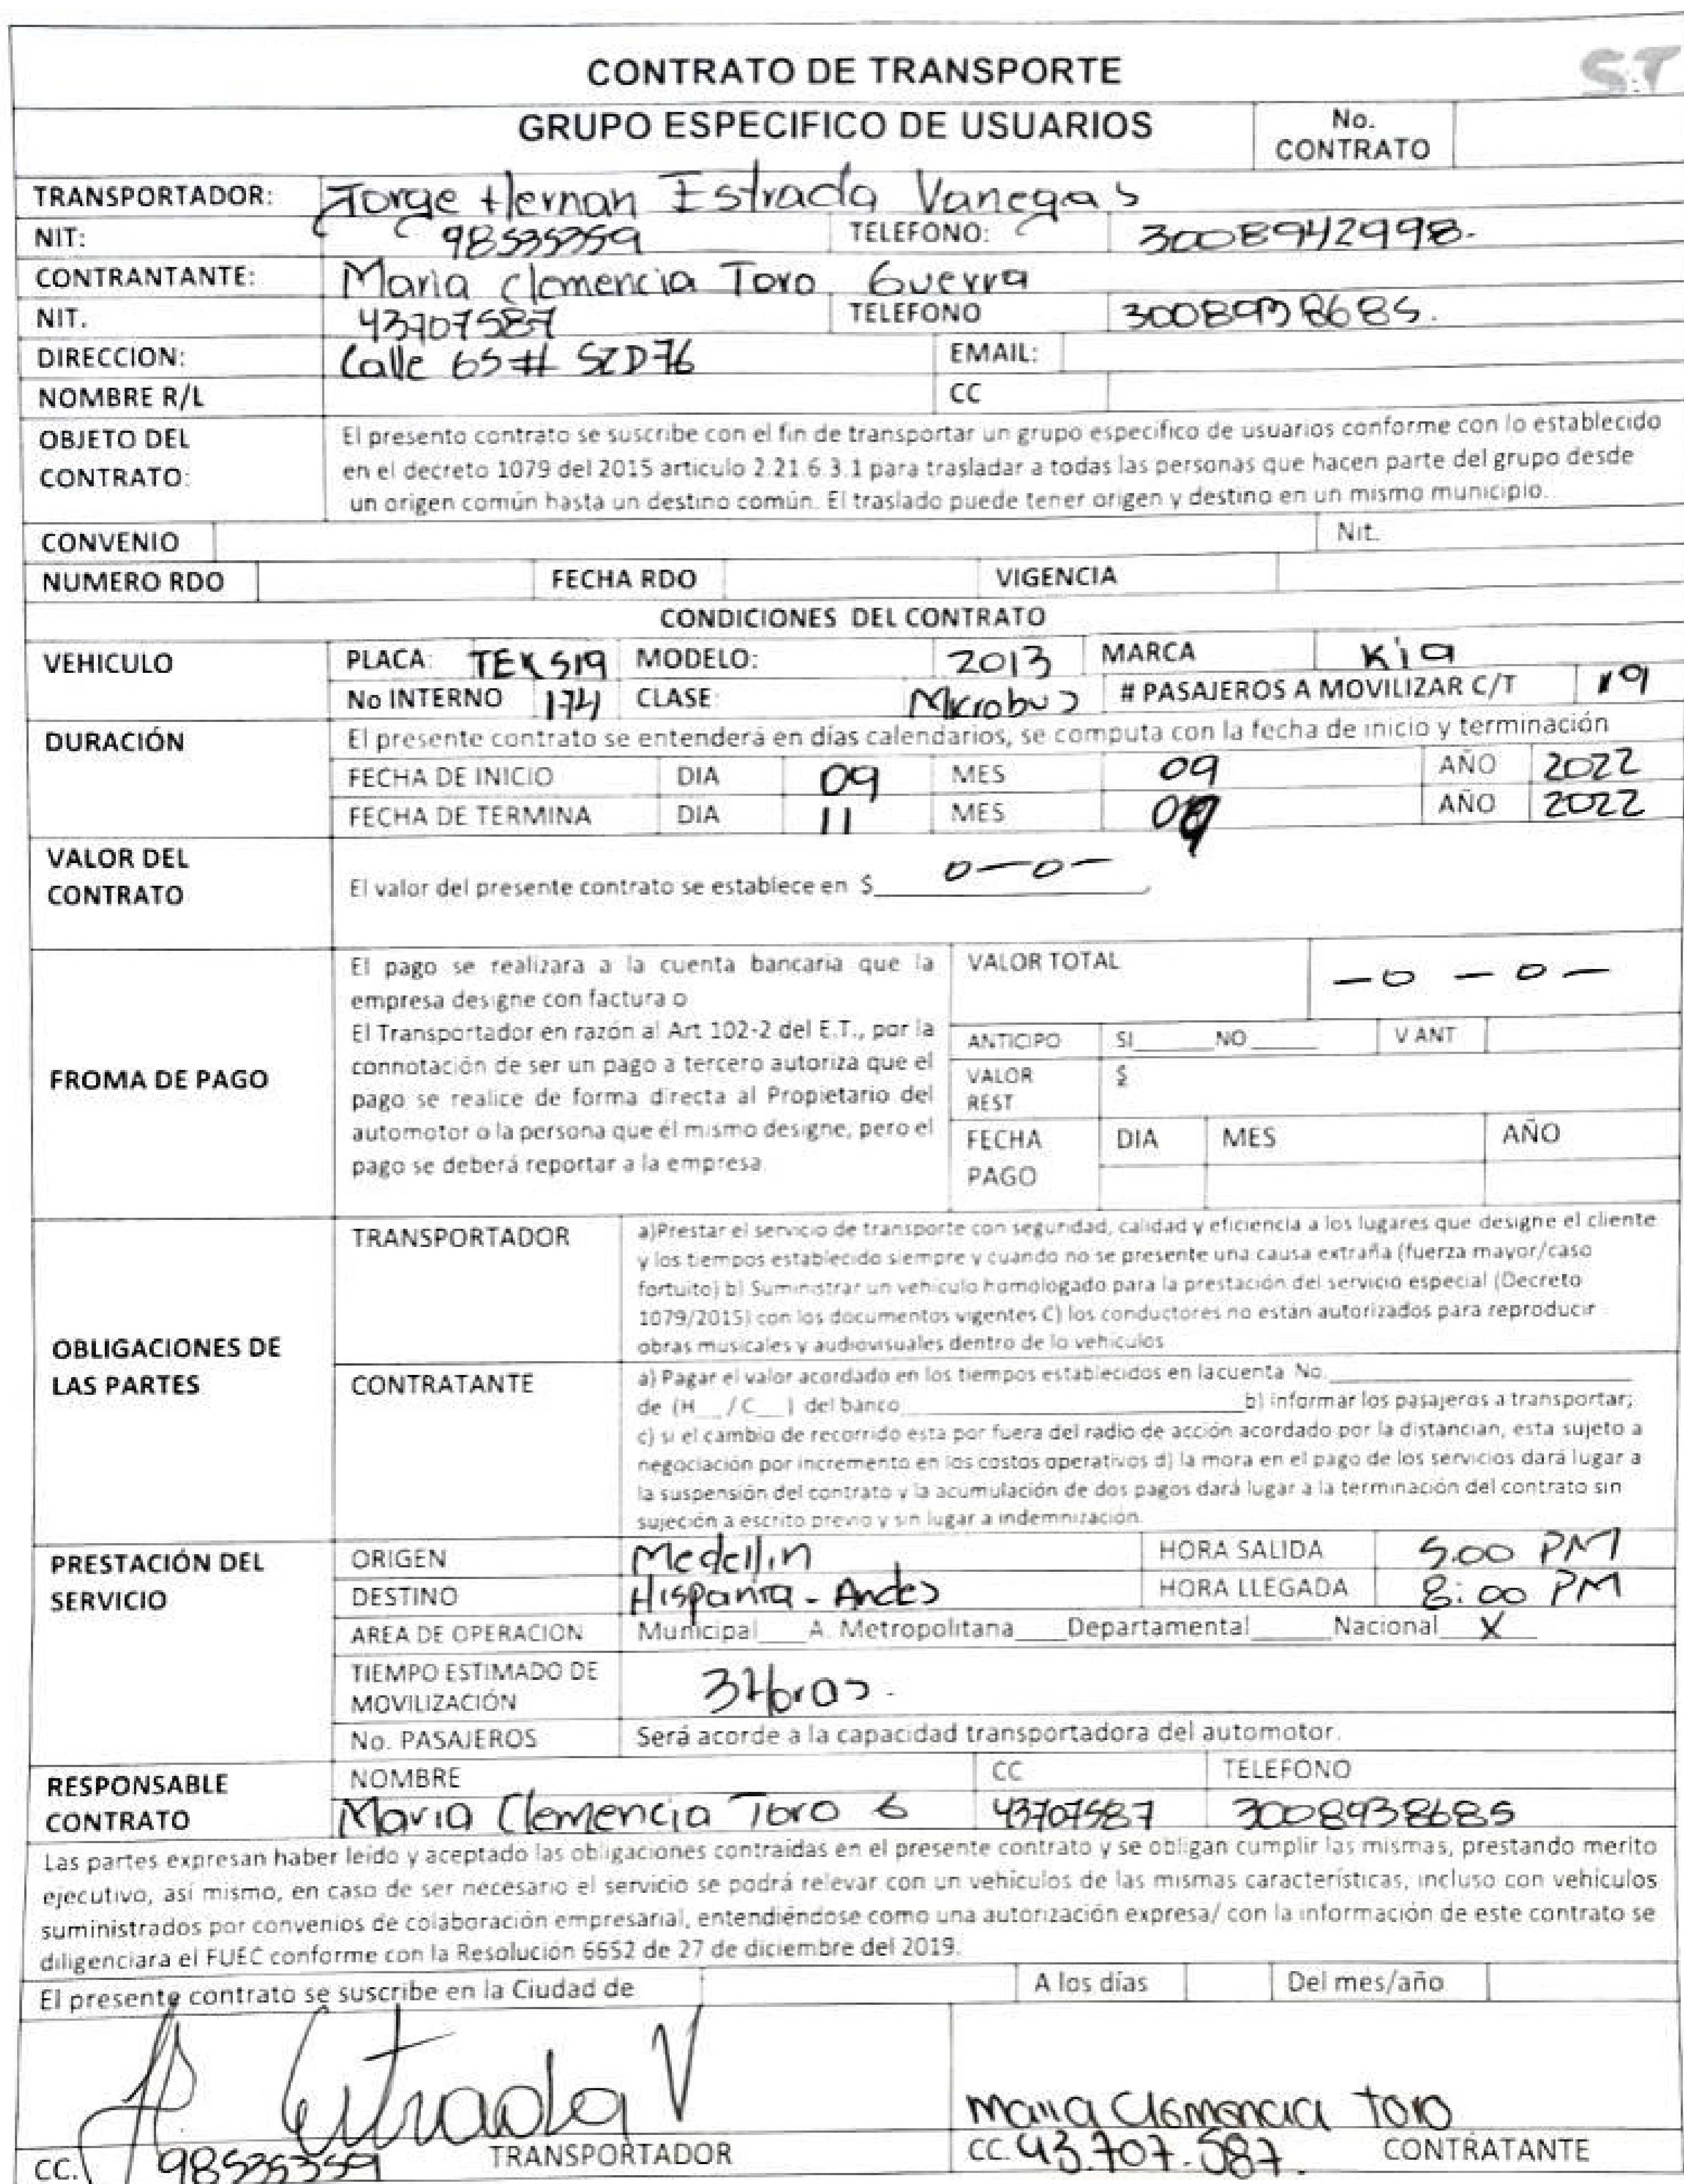 CONTRATO DE TRANSPORTE
ST
GRUPO ESPECIFICO DE USUARIOS
No. CONTRATO
TRANSPORTADOR: Jorge Hernan Estrada Vanegas
NIT: 98535359 TELEFONO: 3008942998.
CONTRANTANTE: Maria Clemencia Toro Guerra
NIT. 43707587 TELEFONO 3008938685.
DIRECCION: Calle 65 # 52D76 EMAIL:
NOMBRE R/L CC
OBJETO DEL CONTRATO:
El presento contrato se suscribe con el fin de transportar un grupo especifico de usuarios conforme con lo establecido
en el decreto 1079 del 2015 articulo 2.21.6.3.1 para trasladar a todas las personas que hacen parte del grupo desde
un origen común hasta un destino común. El traslado puede tener origen y destino en un mismo municipio.
CONVENIO Nit.
NUMERO RDO FECHA RDO VIGENCIA
CONDICIONES DEL CONTRATO
VEHICULO PLACA: TEK519 MODELO: 2013 MARCA Kia
No INTERNO 174 CLASE: Microbus # PASAJEROS A MOVILIZAR C/T 19
DURACIÓN El presente contrato se entenderá en días calendarios, se computa con la fecha de inicio y terminación
FECHA DE INICIO DIA 09 MES 09 AÑO 2022
FECHA DE TERMINA DIA 11 MES 09 AÑO 2022
VALOR DEL CONTRATO
El valor del presente contrato se establece en $ 0-0-
FROMA DE PAGO
El pago se realizara a la cuenta bancaria que la
empresa designe con factura o
El Transportador en razón al Art 102-2 del E.T., por la
connotación de ser un pago a tercero autoriza que el
pago se realice de forma directa al Propietario del
automotor o la persona que él mismo designe, pero el
pago se deberá reportar a la empresa.
VALOR TOTAL -0-0-
ANTICIPO SI____NO____ V ANT
VALOR REST $
FECHA PAGO DIA MES AÑO
OBLIGACIONES DE LAS PARTES
TRANSPORTADOR
a)Prestar el servicio de transporte con seguridad, calidad y eficiencia a los lugares que designe el cliente
y los tiempos establecido siempre y cuando no se presente una causa extraña (fuerza mayor/caso
fortuito) b) Suministrar un vehículo homologado para la prestación del servicio especial (Decreto
1079/2015) con los documentos vigentes C) los conductores no están autorizados para reproducir
obras musicales y audiovisuales dentro de lo vehículos
CONTRATANTE
a) Pagar el valor acordado en los tiempos establecidos en lacuenta No.____
de (H__/C__) del banco____b) informar los pasajeros a transportar;
c) si el cambio de recorrido esta por fuera del radio de acción acordado por la distancian, esta sujeto a
negociación por incremento en los costos operativos d) la mora en el pago de los servicios dará lugar a
la suspensión del contrato y la acumulación de dos pagos dará lugar a la terminación del contrato sin
sujeción a escrito previo y sin lugar a indemnización.
PRESTACIÓN DEL SERVICIO
ORIGEN Medellin HORA SALIDA 5.00 PM
DESTINO Hispania - Andes HORA LLEGADA 8:00 PM
AREA DE OPERACION Municipal___A. Metropolitana___Departamental____Nacional X
TIEMPO ESTIMADO DE MOVILIZACIÓN 3 Horas.
No. PASAJEROS Será acorde a la capacidad transportadora del automotor.
RESPONSABLE CONTRATO
NOMBRE CC TELEFONO
Maria Clemencia Toro G 43707587 3008938685
Las partes expresan haber leído y aceptado las obligaciones contraidas en el presente contrato y se obligan cumplir las mismas, prestando merito
ejecutivo, así mismo, en caso de ser necesario el servicio se podrá relevar con un vehículos de las mismas características, incluso con vehículos
suministrados por convenios de colaboración empresarial, entendiéndose como una autorización expresa/ con la información de este contrato se
diligenciara el FUEC conforme con la Resolución 6652 de 27 de diciembre del 2019.
El presente contrato se suscribe en la Ciudad de A los días Del mes/año
Estrada V
Maria Clemencia Toro
CC. 98535359 TRANSPORTADOR
CC. 43.707.587. CONTRATANTE